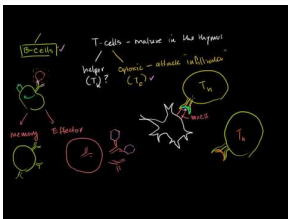 B-cells
T-cells - mature in the thymus
helper
(Th)?
Cytotoxic - attack "infiltrated"
(Tc)
Memory
Effector
Th
MHC II
Th